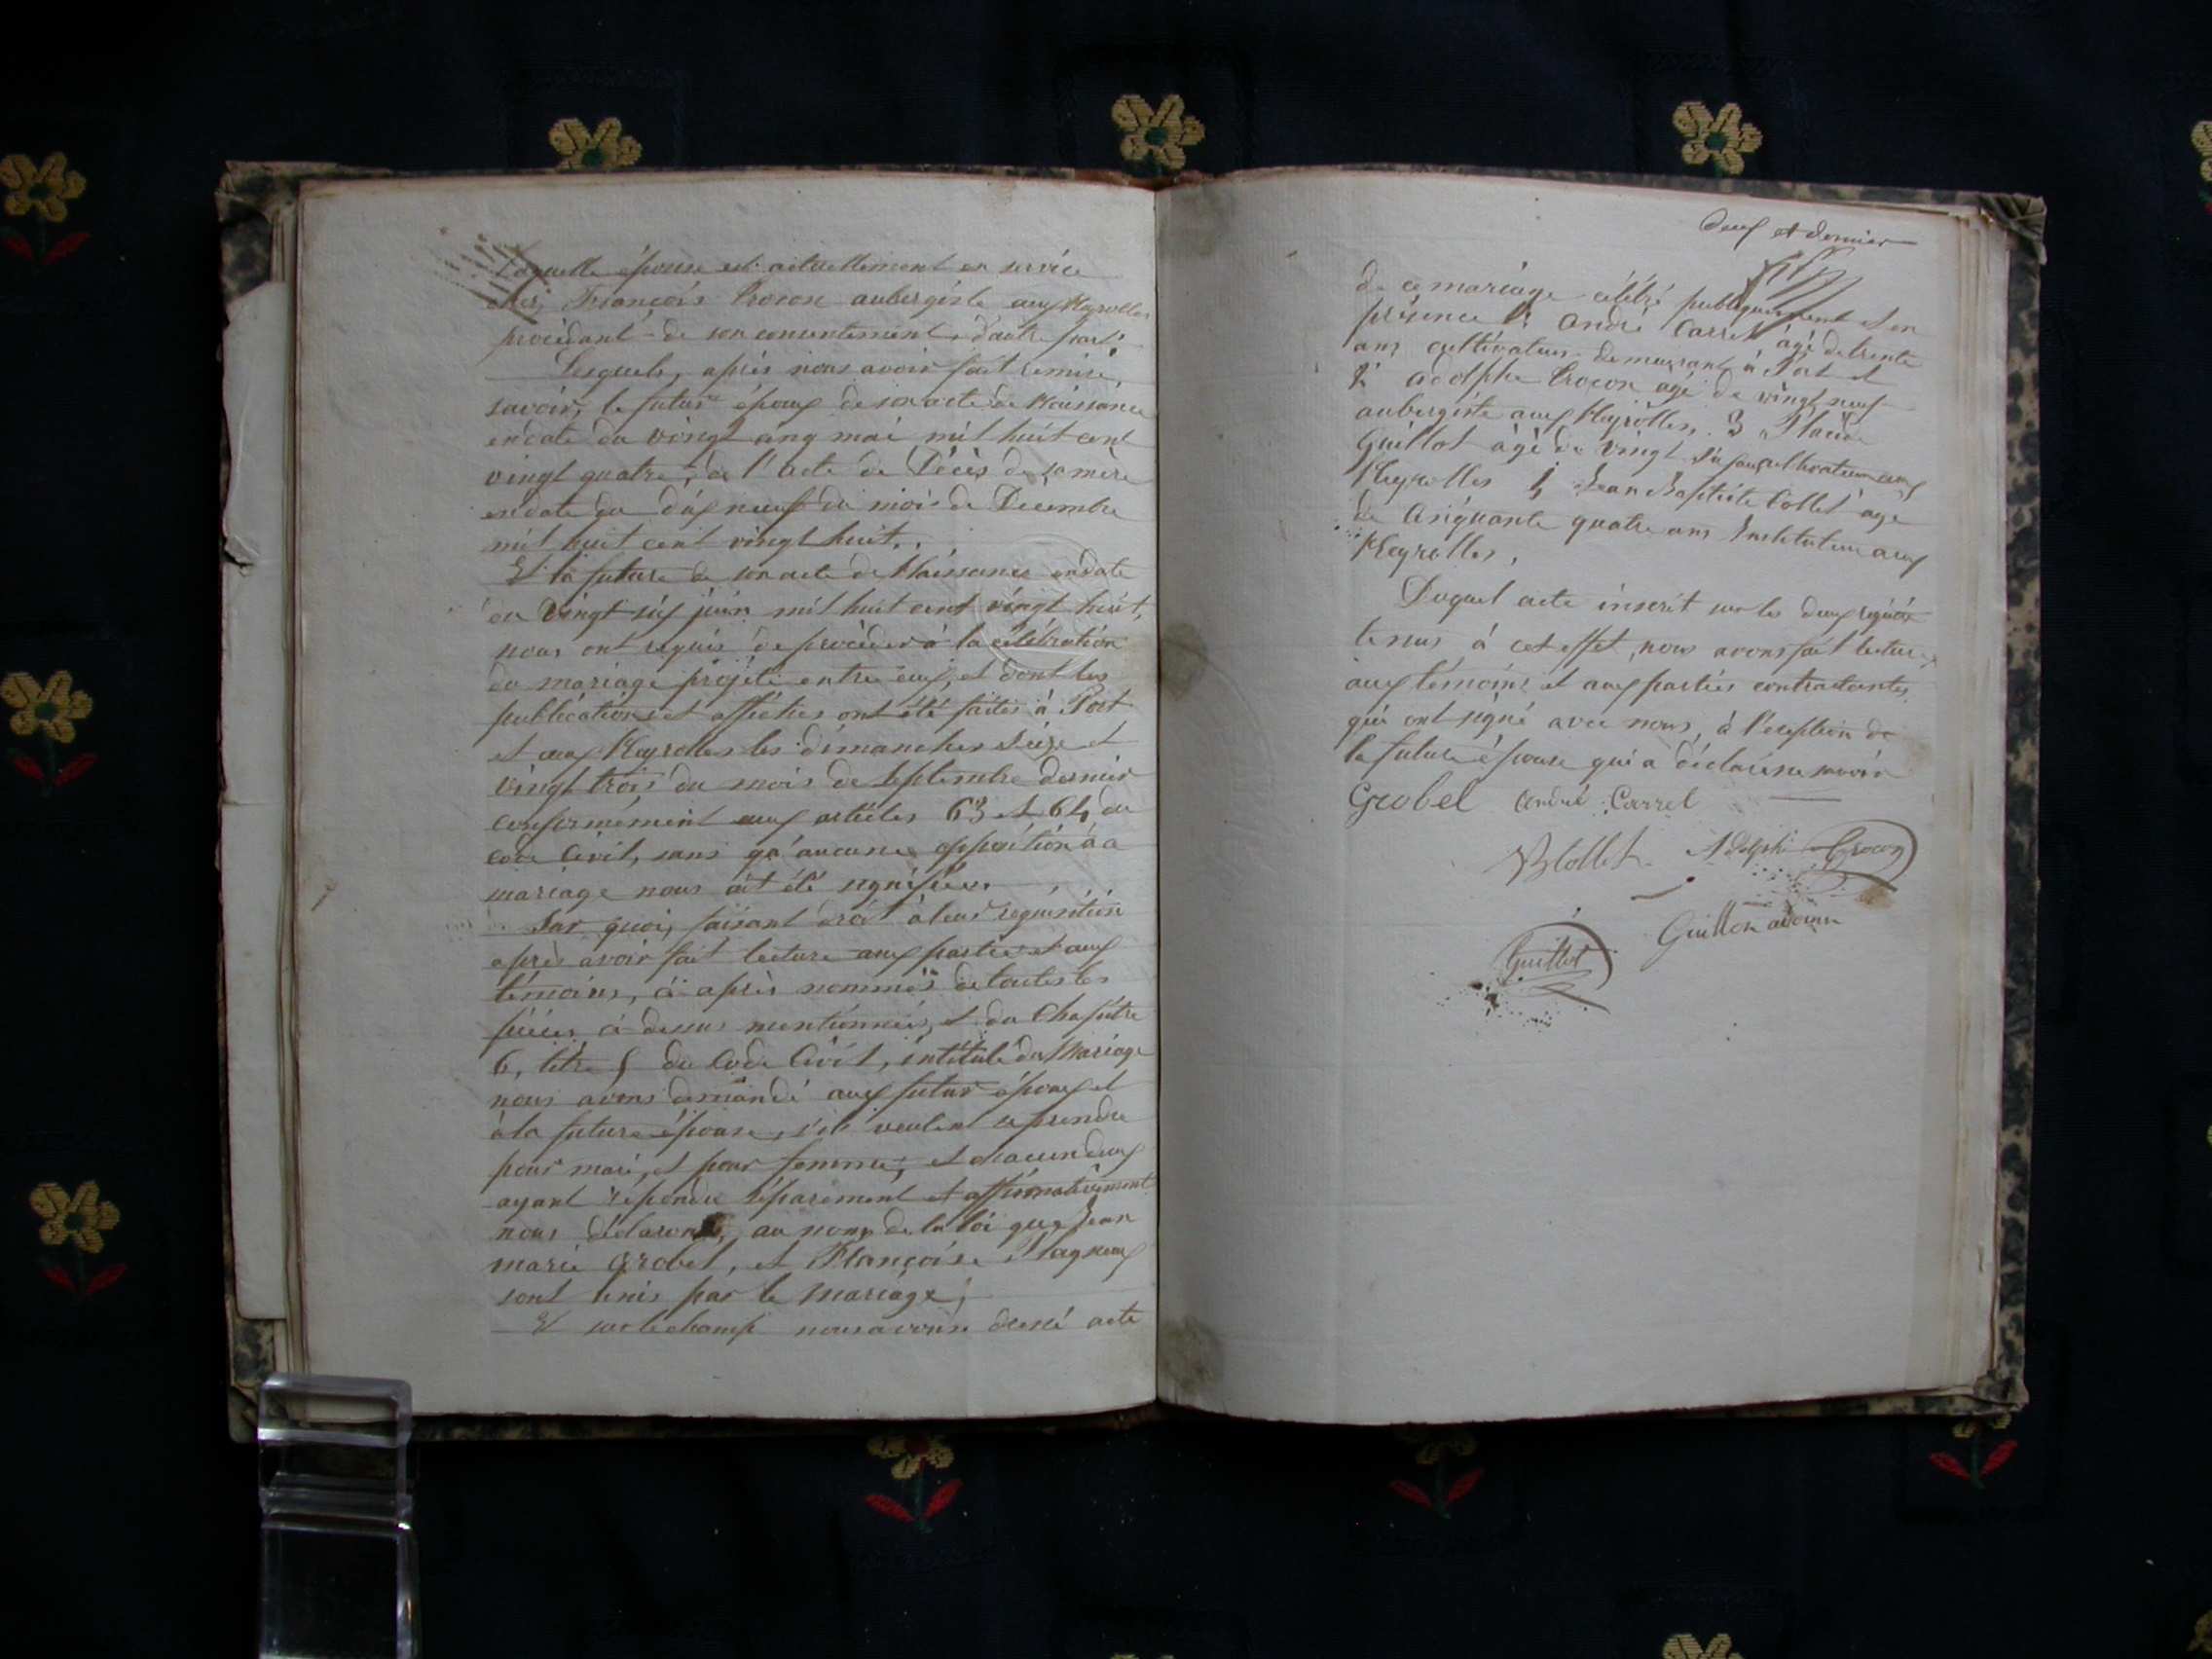 Laquelle épouse est actuellement en service
chez François Crocon aubergiste aux Neyrolles
procédant de son consentement, d'autre part.
Lesquels, après nous avoir fait remise,
savoir, le futur époux de son acte de Naissance
en date du vingt cinq mai mil huit cent
vingt quatre, de l'acte de Décès de sa mère
en date du dix neuf du mois de Décembre
mil huit cent vingt huit.
Et la future de son acte de Naissance en date
du vingt six juin mil huit cent vingt huit,
nous ont requis de procéder à la célébration
du mariage projété entre eux, et dont les
publications et affiches ont été faites à Port
et aux Neyrolles les dimanches seize et
vingt trois du mois de septembre dernier
conformément aux articles 63 et 64 du
code Civil, sans qu'aucune opposition à ce
mariage nous ait été signifiée.
Sur quoi, faisant droit à leur réquisition
après avoir fait lecture aux parties et aux
témoins, ci après nommés de toutes les
pièces ci dessus mentionnées, et du Chapitre
6, titre 5 du Code Civil, intitulé du Mariage
nous avons demandé aux futur époux et
à la future épouse, s'ils veulent se prendre
pour mari, et pour femme, et chacun d'eux
ayant répondu séparément et affirmativement
nous déclarons, au nom de la loi que Jean
marie Grobel, et Françoise Plagneux
sont unis par le Mariage;
Et sur le champ nous avons dressé acte
deux et dernier
de ce mariage célébré publiquement et en
présence 1° André Carrel âgé de trente
ans cultivateur demeurant à Port et
2° Adolphe Crocon agé de vingt neuf
aubergiste aux Neyrolles, 3
Guillot âgé de vingt six ans cultivateur aux
Neyrolles 4 Jean Baptiste Collet âgé
de Cinquante quatre ans Instituteur aux
Neyrolles,
Duquel acte inscrit sur les deux registres
tenus à cet effet, nous avons fait lecture
aux témoins et aux parties contractantes
qui ont signé avec nous, à l'exeption de
la future épouse qui a déclaré ne savoir
Grobel André Carrel
JB Collet Adolphe Crocon
Guillot